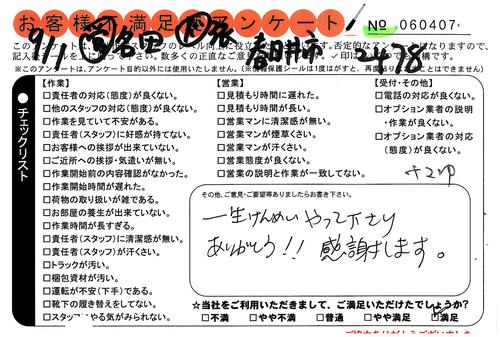 お客様ご満足度アンケート!
№ 060407
9/1
春日井市
2478
【作業】
□責任者の対応(態度)が良くない。
□他のスタッフの対応(態度)が良くない。
□作業を見ていて不安がある。
□責任者(スタッフ)に好感が持てない。
□お客様への挨拶が出来ていない。
□ご近所への挨拶・気遣いが無い。
□作業開始前の内容確認がなかった。
□作業開始時間が遅れた。
□荷物の取り扱いが雑である。
□お部屋の養生が出来ていない。
□作業時間が長すぎる。
□責任者(スタッフ)に清潔感が無い。
□責任者(スタッフ)が汗くさい。
□トラックが汚い。
□梱包資材が汚い。
□運転が不安(下手)である。
□靴下の履き替えをしてない。
□スタッフにやる気がみられない。
【営業】
□見積もり時間に遅れた。
□見積もり時間が長い。
□営業マンに清潔感が無い。
□営業マンが煙草くさい。
□営業マンが汗くさい。
□営業態度が良くない。
□営業の説明と作業が一致してない。
【受付・その他】
□電話の対応が良くない。
□オプション業者の説明
・作業が良くない。
□オプション業者の対応
(態度)が良くない。
チェックリスト
その他、ご意見・ご要望等ありましたらお書き下さい。
一生けんめいやって下さり
ありがとう!! 感謝します。
☆当社をご利用いただきまして、ご満足いただけたでしょうか?
□不満 □やや不満 □普通 □やや満足 □満足